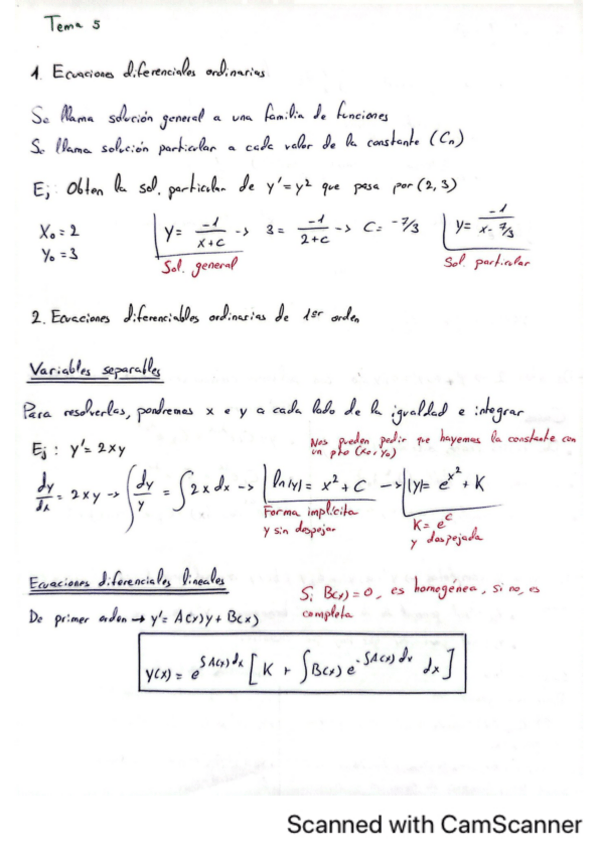 Tema 5
1. Ecuaciones diferenciales ordinarias
Se llama solución general a una familia de funciones
Se llama solución particular a cada valor de la constante (Cn)
Ej: Obten la sol. particular de y' = y² que pasa por (2, 3)
X₀ = 2
Y₀ = 3
y = -1/(x+c) -> 3 = -1/(2+c) -> C = -7/3
y = -1/(x - 7/3)
Sol. general
Sol. particular
2. Ecuaciones diferenciables ordinarias de 1er orden
Variables separables
Para resolverlas, pondremos x e y a cada lado de la igualdad e integrar
Ej: y' = 2xy
Nos pueden pedir que hayemos la constante con
un pto (x₀, y₀)
dy/dx = 2xy -> ∫ dy/y = ∫ 2x dx -> ln|y| = x² + C -> |y| = e^x² + K
Forma implícita
y sin despejar
K = e^c
y despejada
Ecuaciones diferenciales lineales
Si B(x) = 0, es homogénea, si no, es
completa
De primer orden → y' = A(x)y + B(x)
y(x) = e^∫A(x)dx [ K + ∫B(x) e^-∫A(x)dx dx ]
Scanned with CamScanner